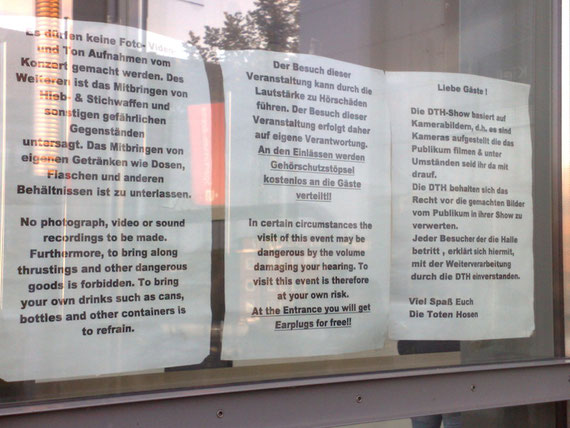 Es dürfen keine Foto- Video
und Ton Aufnahmen vom
Konzert gemacht werden. Des
Weiteren ist das Mitbringen von
Hieb- & Stichwaffen und
sonstigen gefährlichen
Gegenständen
untersagt. Das Mitbringen von
eigenen Getränken wie Dosen,
Flaschen und anderen
Behältnissen ist zu unterlassen.
No photograph, video or sound
recordings to be made.
Furthermore, to bring along
thrustings and other dangerous
goods is forbidden. To bring
your own drinks such as cans,
bottles and other containers is
to refrain.
Der Besuch dieser
Veranstaltung kann durch die
Lautstärke zu Hörschäden
führen. Der Besuch dieser
Veranstaltung erfolgt daher
auf eigene Verantwortung.
An den Einlässen werden
Gehörschutzstöpsel
kostenlos an die Gäste
verteilt!!
In certain circumstances the
visit of this event may be
dangerous by the volume
damaging your hearing. To
visit this event is therefore
at your own risk.
At the Entrance you will get
Earplugs for free!!
Liebe Gäste !
Die DTH-Show basiert auf
Kamerabildern, d.h. es sind
Kameras aufgestellt die das
Publikum filmen & unter
Umständen seid ihr da mit
drauf.
Die DTH behalten sich das
Recht vor die gemachten Bilder
vom Publikum in ihrer Show zu
verwerten.
Jeder Besucher der die Halle
betritt , erklärt sich hiermit,
mit der Weiterverarbeitung
durch die DTH einverstanden.
Viel Spaß Euch
Die Toten Hosen